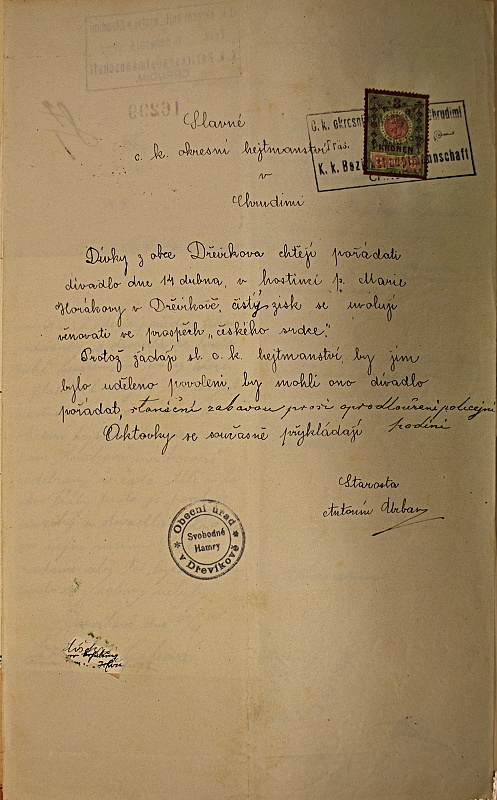 Slavné
c. k. okresní hejtmanství
v
Chrudimi
C. k. okresní Chrudimi
K. k. Bezi mannschaft
3
KRONEN
Dívky z obce Dřevíkova chtějí pořádati
divadlo dne 14 dubna, v hostinci p. Marie
Horákovy v Dřevíkově, čistý zisk se uvolují
věnovati ve prospěch „českého srdce."
Protož žádají sl. c. k. hejtmanství, by jim
bylo uděleno povolení, by mohli ono divadlo
pořádat, s taneční zábavou prosí o prodloužení policejní
hodiny
Aktovky se současně přikládají
Starosta
Antonín Urban
Obecní úřad
Svobodné
Hamry
v Dřevíkově
16299